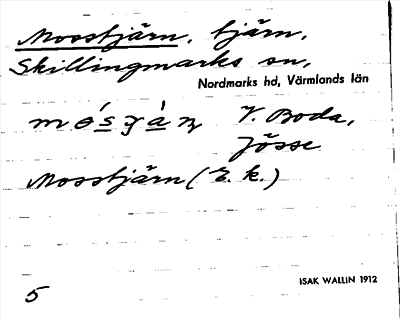 Mosstjärn, tjärn,
Skillingmarks sn,
Nordmarks hd, Värmlands län
V. Boda,
Jösse
Mosstjärn (E. k.)
ISAK WALLIN 1912
5